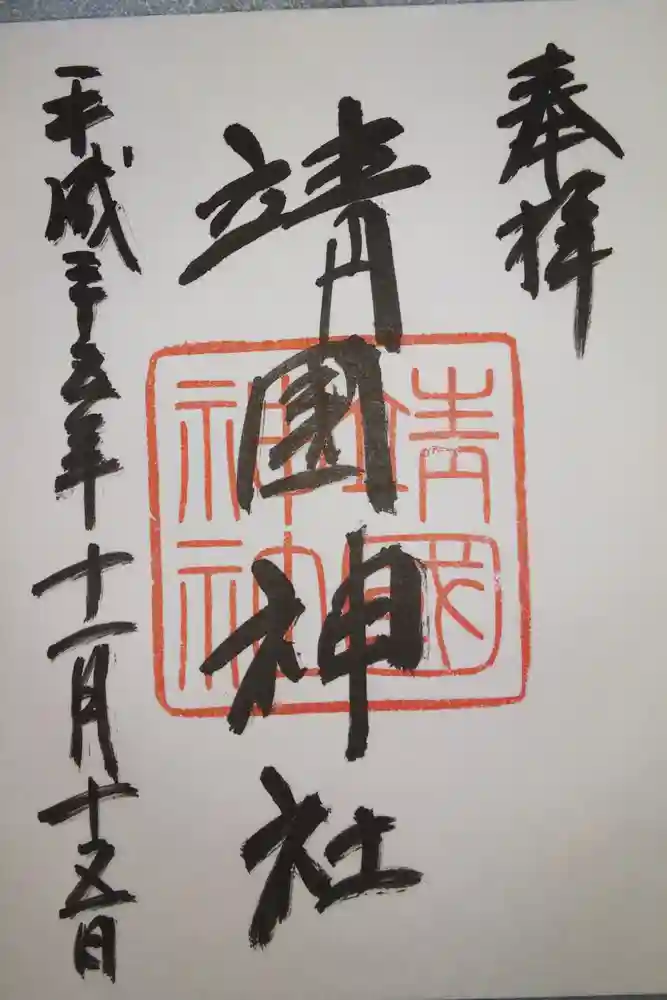 奉拝
靖國神社
靖國神社
平成二十五年十一月十五日